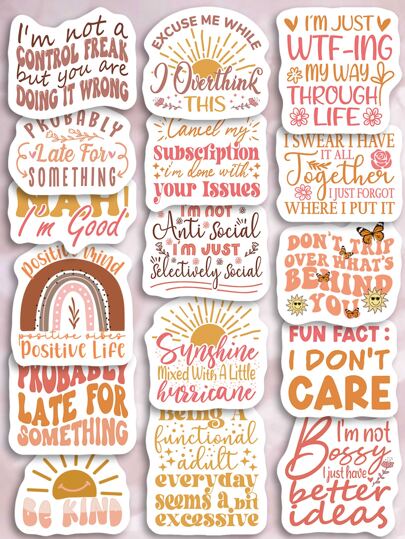 I'm not a
CONTROL FREAK
but you are
DOING IT WRONG
PROBABLY
Late For
SOMETHING
NAH!
I'm Good
Positive Mind
positive vibes
Positive Life
PROBABLY
LATE FOR
SOMETHING
BE KIND
EXCUSE ME WHILE
I Overthink
THIS
Cancel my
Subscription
i'm done with
your Issues
I'M NOT
Anti Social
I'M JUST
Selectively Social
Sunshine
Mixed With A Little
hurricane
Being A
functional
adult
everyday
seems a bit
excessive
I'M JUST
WTF-ING
MY WAY
THROUGH
LIFE
I SWEAR I HAVE
IT ALL
Together
I JUST FORGOT
WHERE I PUT IT
DON'T TRIP
OVER WHAT'S
BEHIND
YOU
FUN FACT:
I DON'T
CARE
I'm not
Bossy
I just have
better
ideas